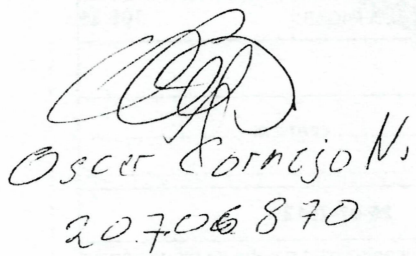 Oscar Cornejo N.
20.706 870